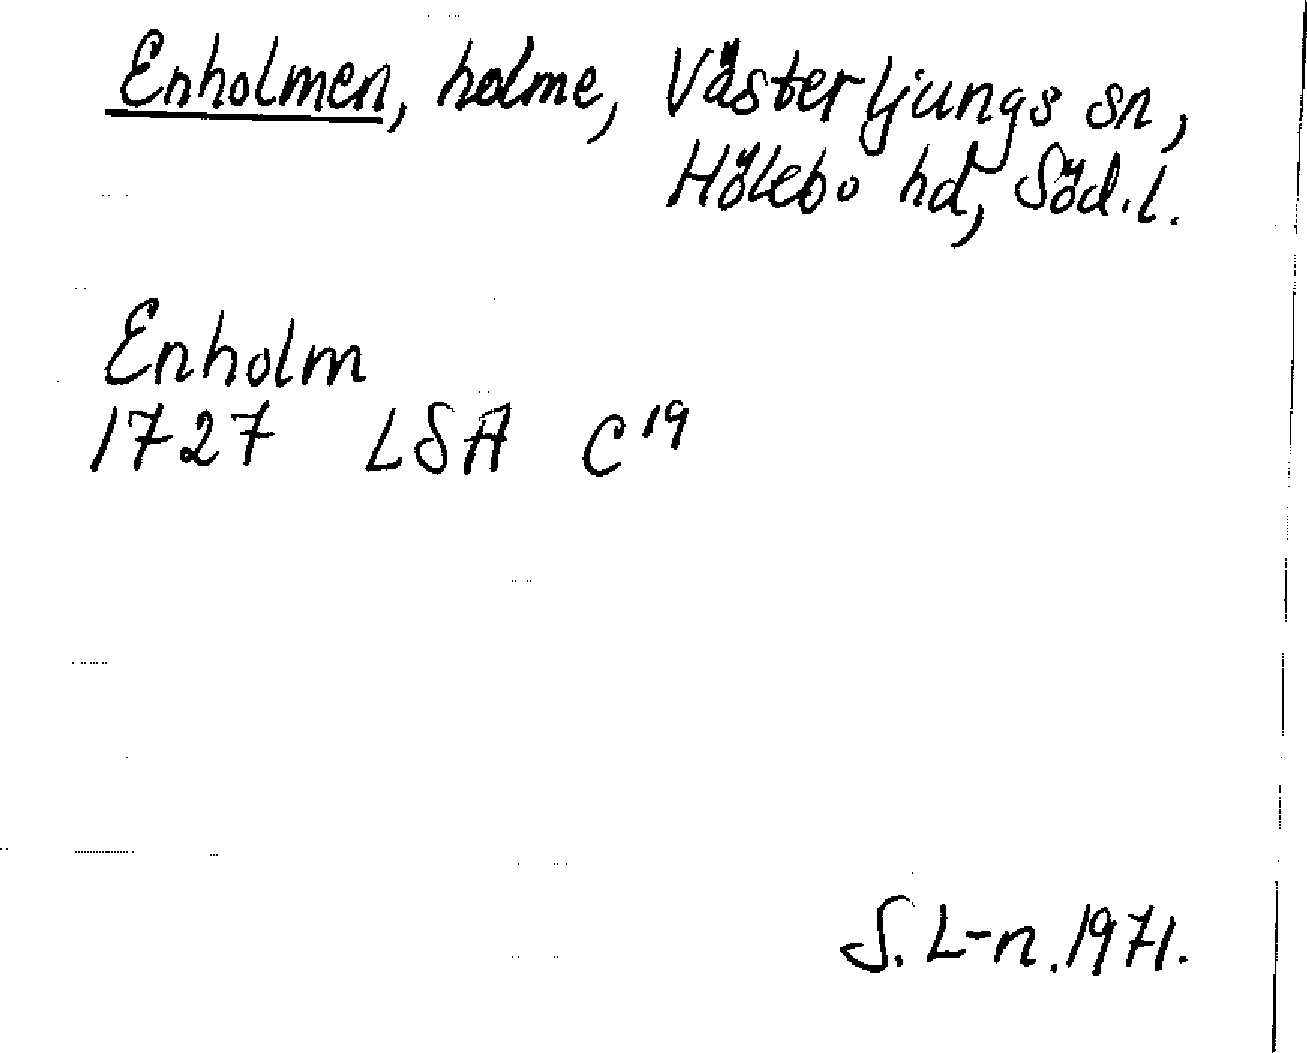 Enholmen, holme, Västerljungs sn,
Hölebo hd, Söd.l.
Enholm
1727 LSA C19
S. L-n. 1971.